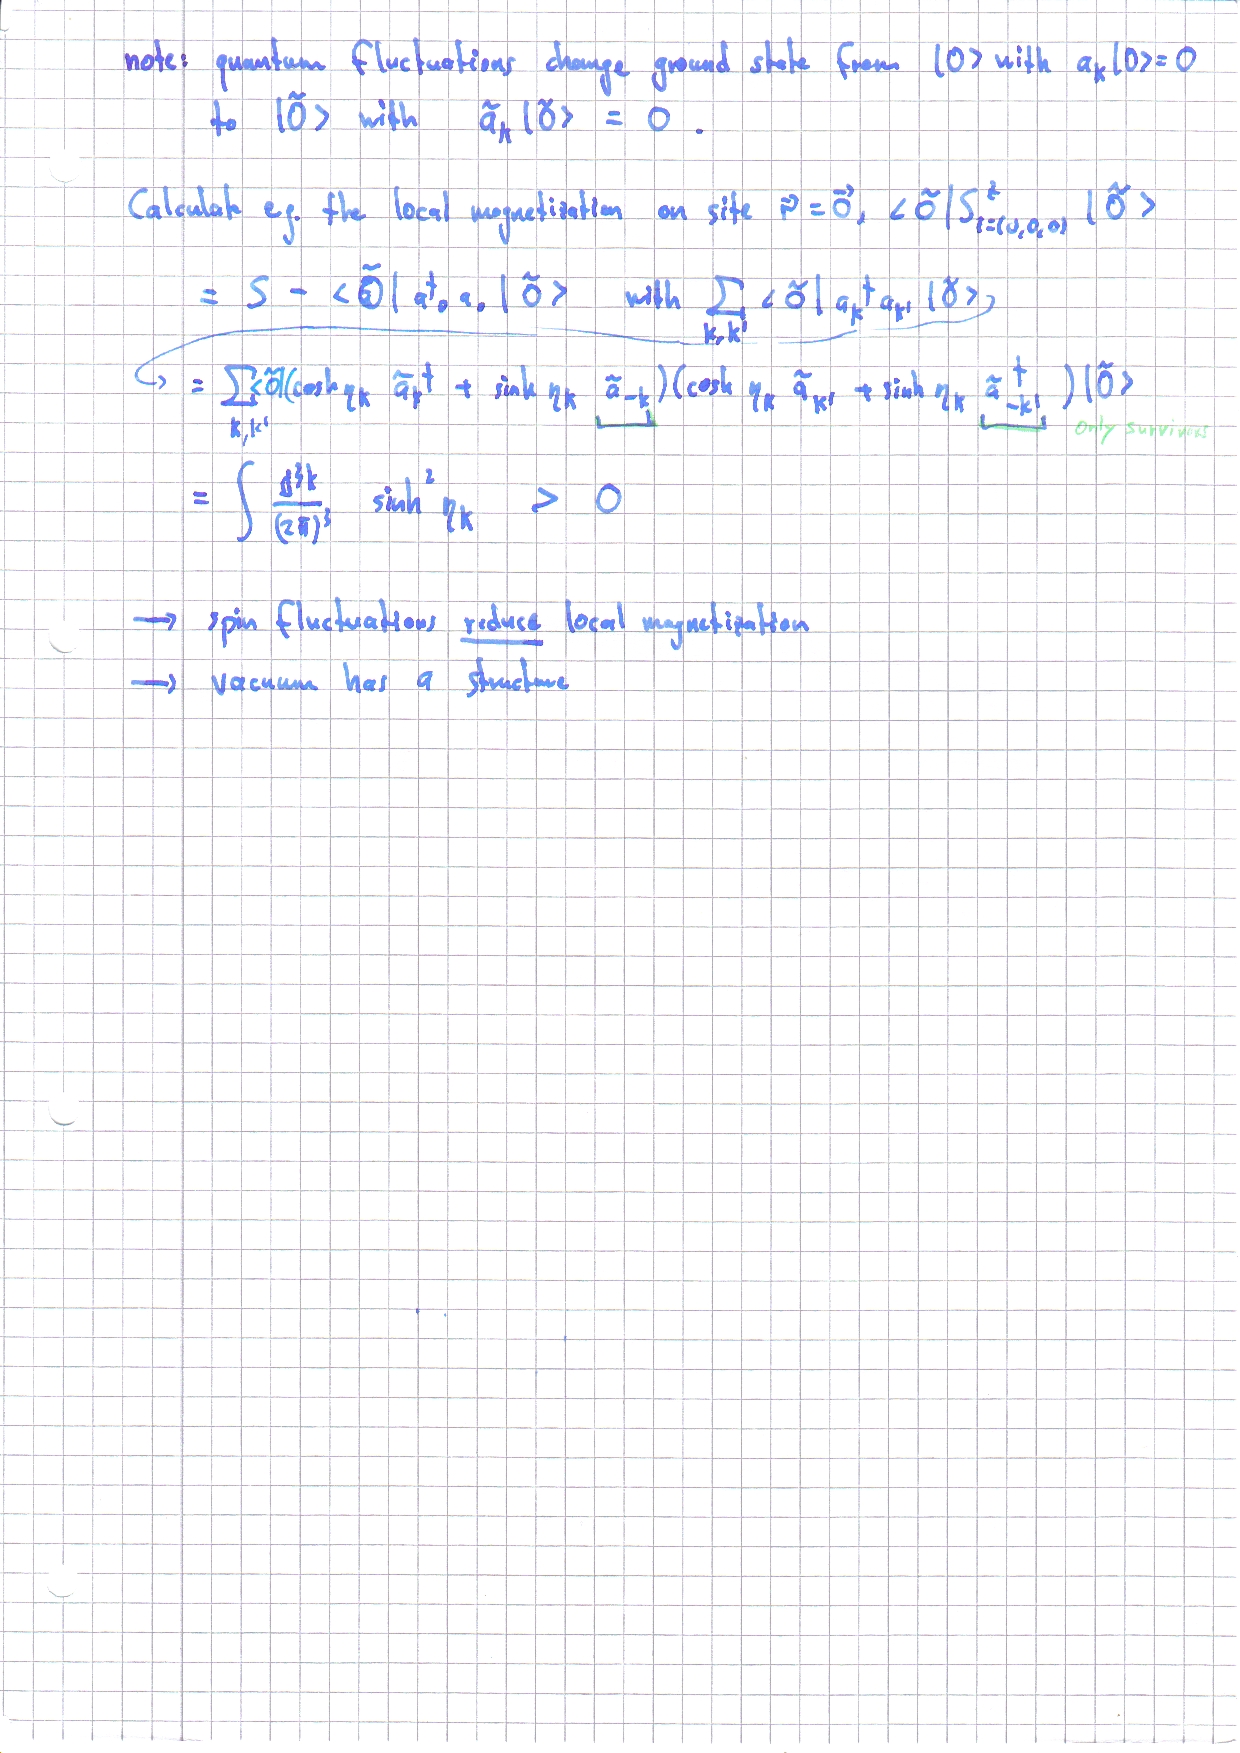 note: quantum fluctuations change ground state from |0> with a_k|0>=0
to |õ> with ã_k|õ> = 0.
Calculate e.g. the local magnetization on site r⃗ = 0⃗, <õ|S^z_{i=(0,0,0)}|õ>
= S - <õ|a†₀ a₀|õ> with ∑_{k,k'} <õ|a_k† a_k'|õ>
= ∑_{k,k'} <õ|(cosh η_k ã_k† + sinh η_k ã_{-k})(cosh η_k ã_k' + sinh η_k ã†_{-k'})|õ>
only survives
= ∫ d³k/(2π)³ sinh² η_k > 0
→ spin fluctuations reduce local magnetization
→ vacuum has a structure